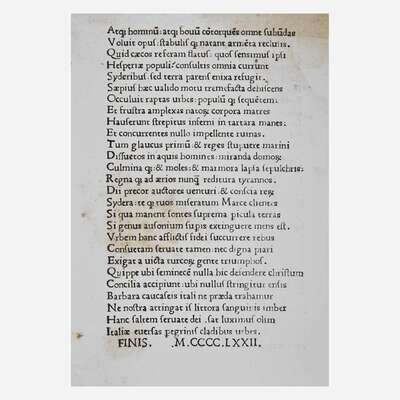 Atqꝫ hominū: atqꝫ bouū cōtorquēs omne subūdas
Voluit opus: stabulis qꝫ natant armēta reclusis.
Quid cæcos referam flatus: quos sensimus ipsi
Hesperiæ populi: consultis omnia currūt
Syderibus: sed terra parens enixa refugit.
Sæpius hæc ualido motu tremefacta dehiscens
Occuluit raptas urbes: populū qꝫ sequētem.
Et frustra amplexas natos: corpora matres
Hauserunt strepitus inferni in tartara manes.
Et concurrentes nullo impellente ruinas.
Tum glaucus primū & reges stupuere marini
Dissuetos in aquis homines: miranda domosqꝫ
Culmina qꝫ: & moles: & marmora lapsa sepulchris:
Regna qꝫ ad aerios nunqꝫ reditura tyrannos.
Dii precor auctores uenturi: & conscia rerū
Sydera: te qꝫ tuos miseratum Marce clientes
Si qua manent sontes suprema picula terras
Si genus ausonium supis extinguere mens est.
Vrbem hanc afflictis fidei succurrere rebus
Consuetam seruate tamen: nec digna piari
Exigat a uictis turcos: & gente triumphos.
Quippe ubi seminecē nulla hic defendere christum
Concilia accipiunt: ubi nullus stringitur ensis
Barbara caucaseis itali ne præda trahamur
Ne nostra attingat is littora sanguis is imber
Hanc saltem seruate dei. sat luximus olim
Italiæ euersas pegrinis cladibus urbes.
FINIS. .M.CCCC.LXXII.